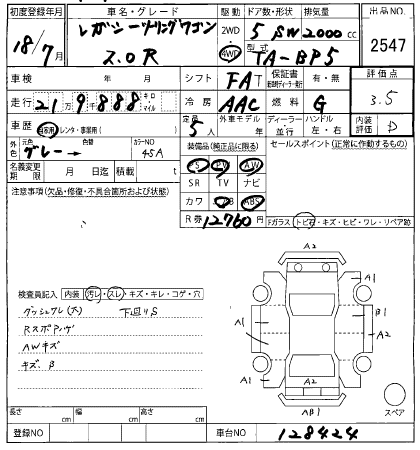 初度登録年月 車名・グレード 駆動 ドア数・形状 排気量 出品NO.
18/7月 レガシーツーリングワゴン 2.0R 2WD 4WD 5 SW 2000cc 2547
型式 TA-BP5
車検 年 月 シフト FAT 保証書 有・無 評価点
走行 21万9千888 キロ マイル 冷房 AAC 燃料 G 3.5
車歴 自家用・レンタ・事業用( ) 定員 5人 外車モデル 年 ディーラー・並行 ハンドル 左・右 内装評価 D
外色 元色 グレー→ 色替 カラーNO 45A 装備品(純正品に限る) セールスポイント(正常に作動するもの)
名義変更期限 月 日迄 積載 t PS PW AW
SR TV ナビ
注意事項(欠品・修復・不具合箇所および状態) カワ AB ABS
R券 12760円 Fガラス・トビ石・キズ・ヒビ・ワレ・リペア跡
A2
A1 A1
検査員記入 内装 汚レ・スレ・キズ・キレ・コゲ・穴
ダッシュワレ(大) 下回りS B1
RスポアハゲA1 A2
AWキズ
キズ、B
A1 A2 A1
AB1 スペア
長さ cm 幅 cm 高さ cm
登録NO 車台NO 128424